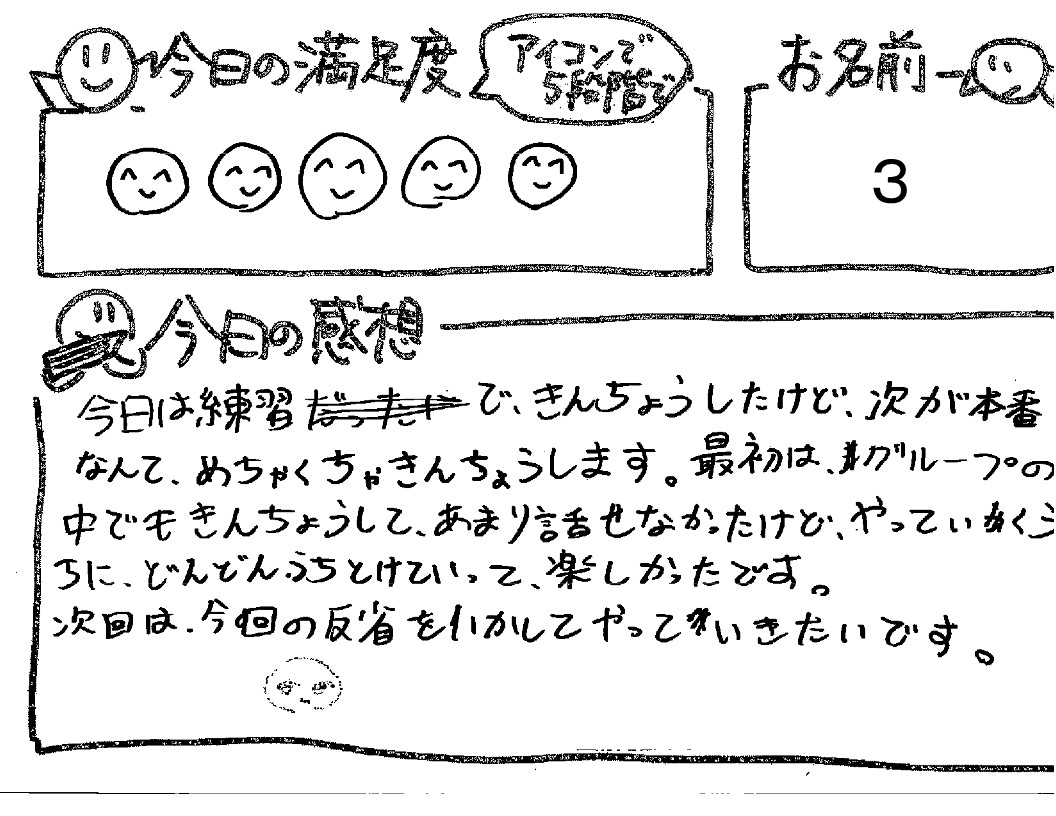 今日の満足度
アイコンで
5段階で
お名前
3
今日の感想
今日は練習で、きんちょうしたけど、次が本番
なんて、めちゃくちゃきんちょうします。最初は、グループの
中でもきんちょうして、あまり話せなかったけど、やっていくう
ちに、どんどんうちとけていって、楽しかったです。
次回は、今回の反省をいかしてやっていきたいです。